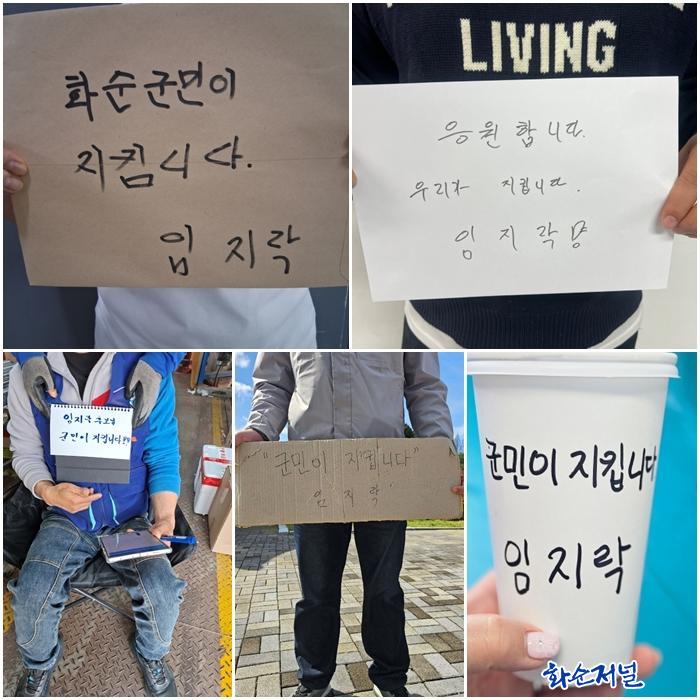 화순군민이
지킴니다.
임지락
LIVING
응원합니다.
우리가 지킵니다.
임지락
임지락 후보님
군민이 지킵니다
"군민이 지킵니다"
임지락
군민이 지킵니다
임지락
화순저널